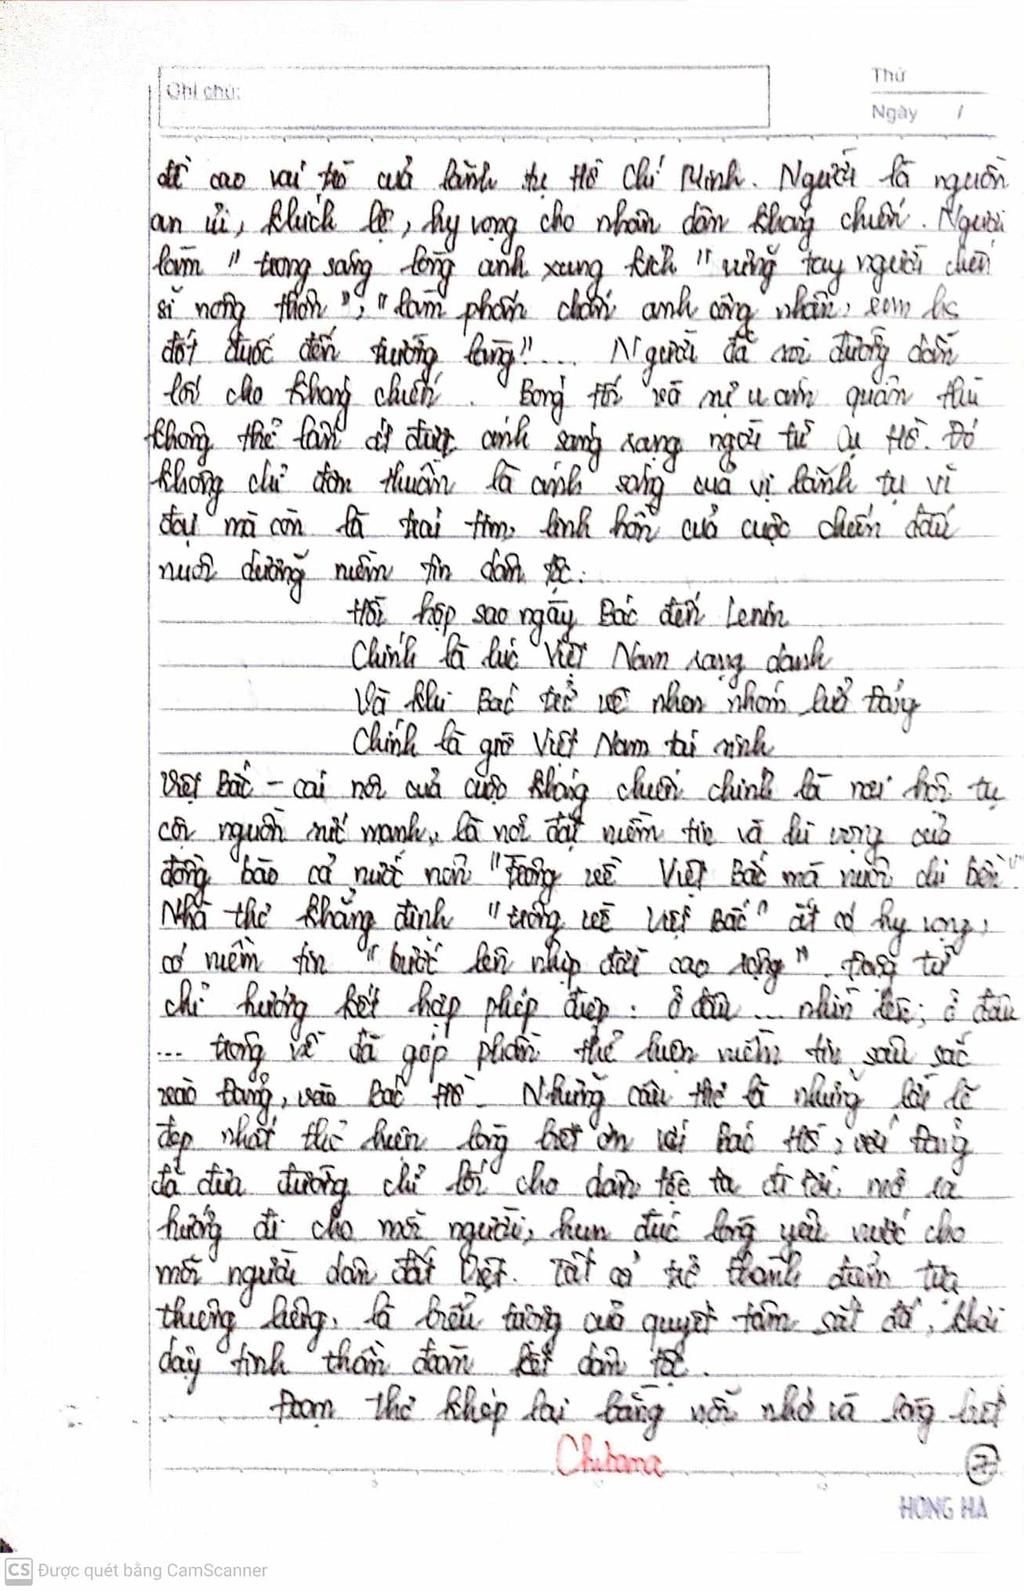 Ghi chú:
Thứ
Ngày /
đề cao vai trò của lãnh tụ Hồ Chí Minh. Người là nguồn
an ủi, khích lệ, hy vọng cho nhân dân kháng chiến. Người
làm "trong sáng lòng anh xung kích" vững tay người chiến
sĩ nông thôn", "làm phấn chấn anh công nhân, em bé
đốt đuốc đến trường làng"... Người đã soi đường dẫn
lối cho kháng chiến. Bóng tối và quân thù
không thể lấn át được ánh sáng sáng ngời từ Cụ Hồ. Đó
không chỉ đơn thuần là ánh sáng của vị lãnh tụ vĩ
đại mà còn là trái tim, linh hồn của cuộc chiến đấu
nuôi dưỡng niềm tin dân tộc:
Hồi hộp sao ngày Bác đến Lenin
Chính là lúc Việt Nam rạng danh
Và khi Bác trở về nhen nhóm lửa
Chính là giờ Việt Nam tái sinh
Việt Bắc - cái nôi của cuộc kháng chiến chính là nơi hội tụ
cội nguồn sức mạnh, là nơi đặt niềm tin và hi vọng của
đồng bào cả nước non "Trông về Việt Bắc mà nuôi chí bền".
Nhà thơ khẳng định "trông về Việt Bắc" ắt có hy vọng,
có niềm tin "bước lên nhịp đời cao rộng". Động từ
chỉ hướng kết hợp phép điệp: ở đâu ... nhìn lên; ở đâu
... trông về đã góp phần thể hiện niềm tin sâu sắc
vào Đảng, vào Bác Hồ. Những câu thơ là những lời lẽ
đẹp nhất thể hiện lòng biết ơn với Bác Hồ, với Đảng
đã đưa đường chỉ lối cho dân tộc ta đi tới, mở ra
hướng đi cho mỗi người, hun đúc lòng yêu nước cho
mỗi người dân đất Việt. Tất cả trở thành điểm tựa
thiêng liêng, là biểu tượng của quyết tâm sắt đá, khơi
dậy tinh thần đoàn kết dân tộc.
Đoạn thơ khép lại bằng nỗi nhớ và lòng biết
HONG HA
CS Được quét bằng CamScanner